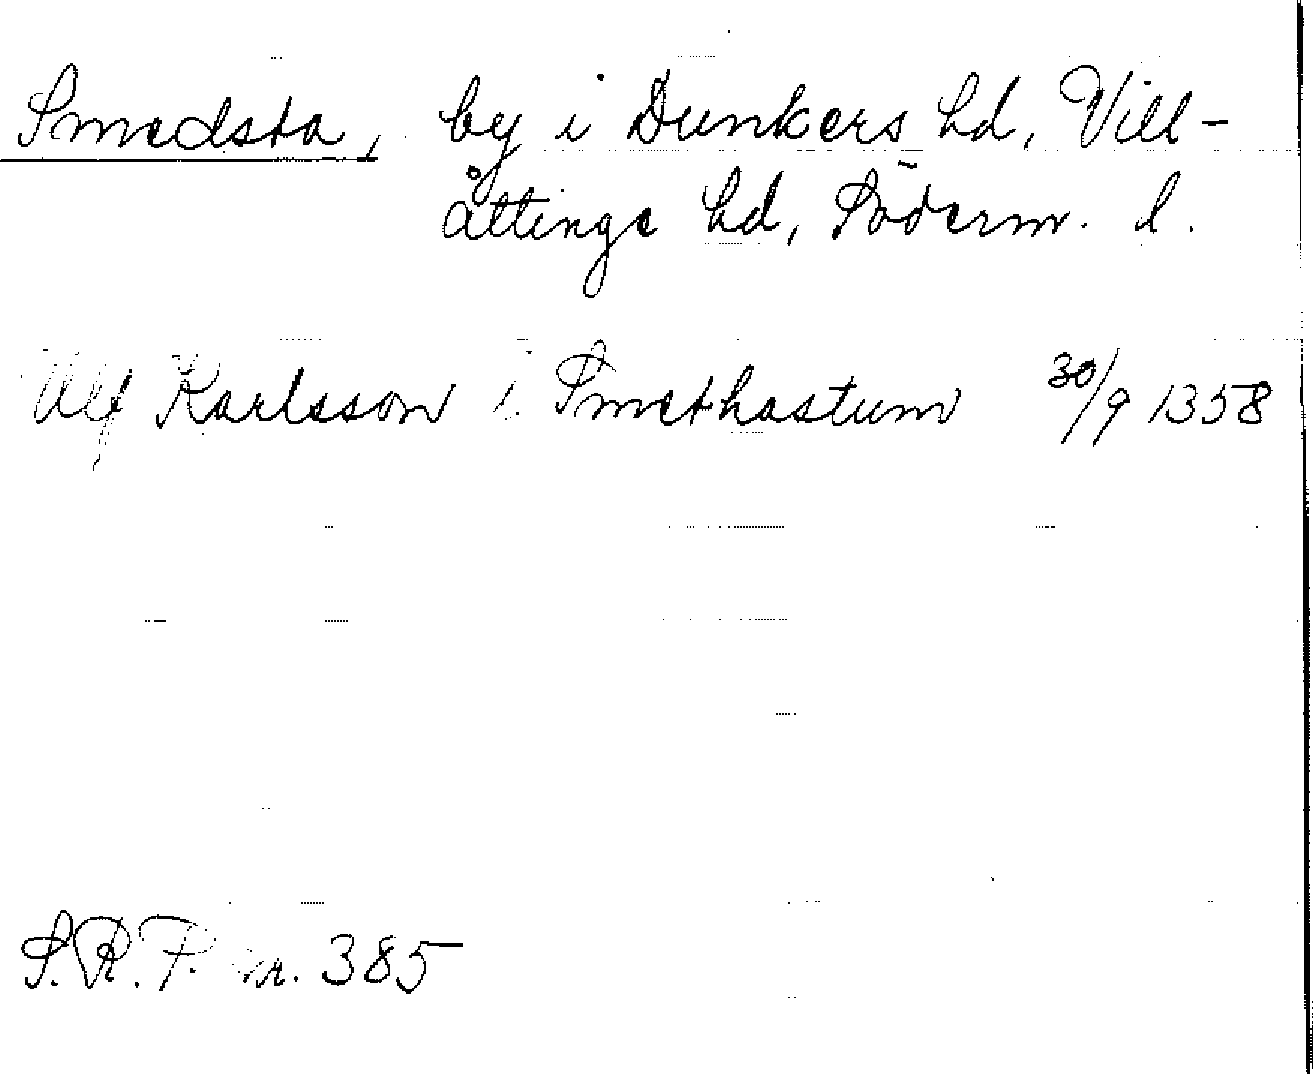 Smedsta, by i Dunkers hd, Vill-
åttinge hd, Söderm. l.
Ulf Karlsson i Smethastum 30/9 1358
S.R.P. nr. 385